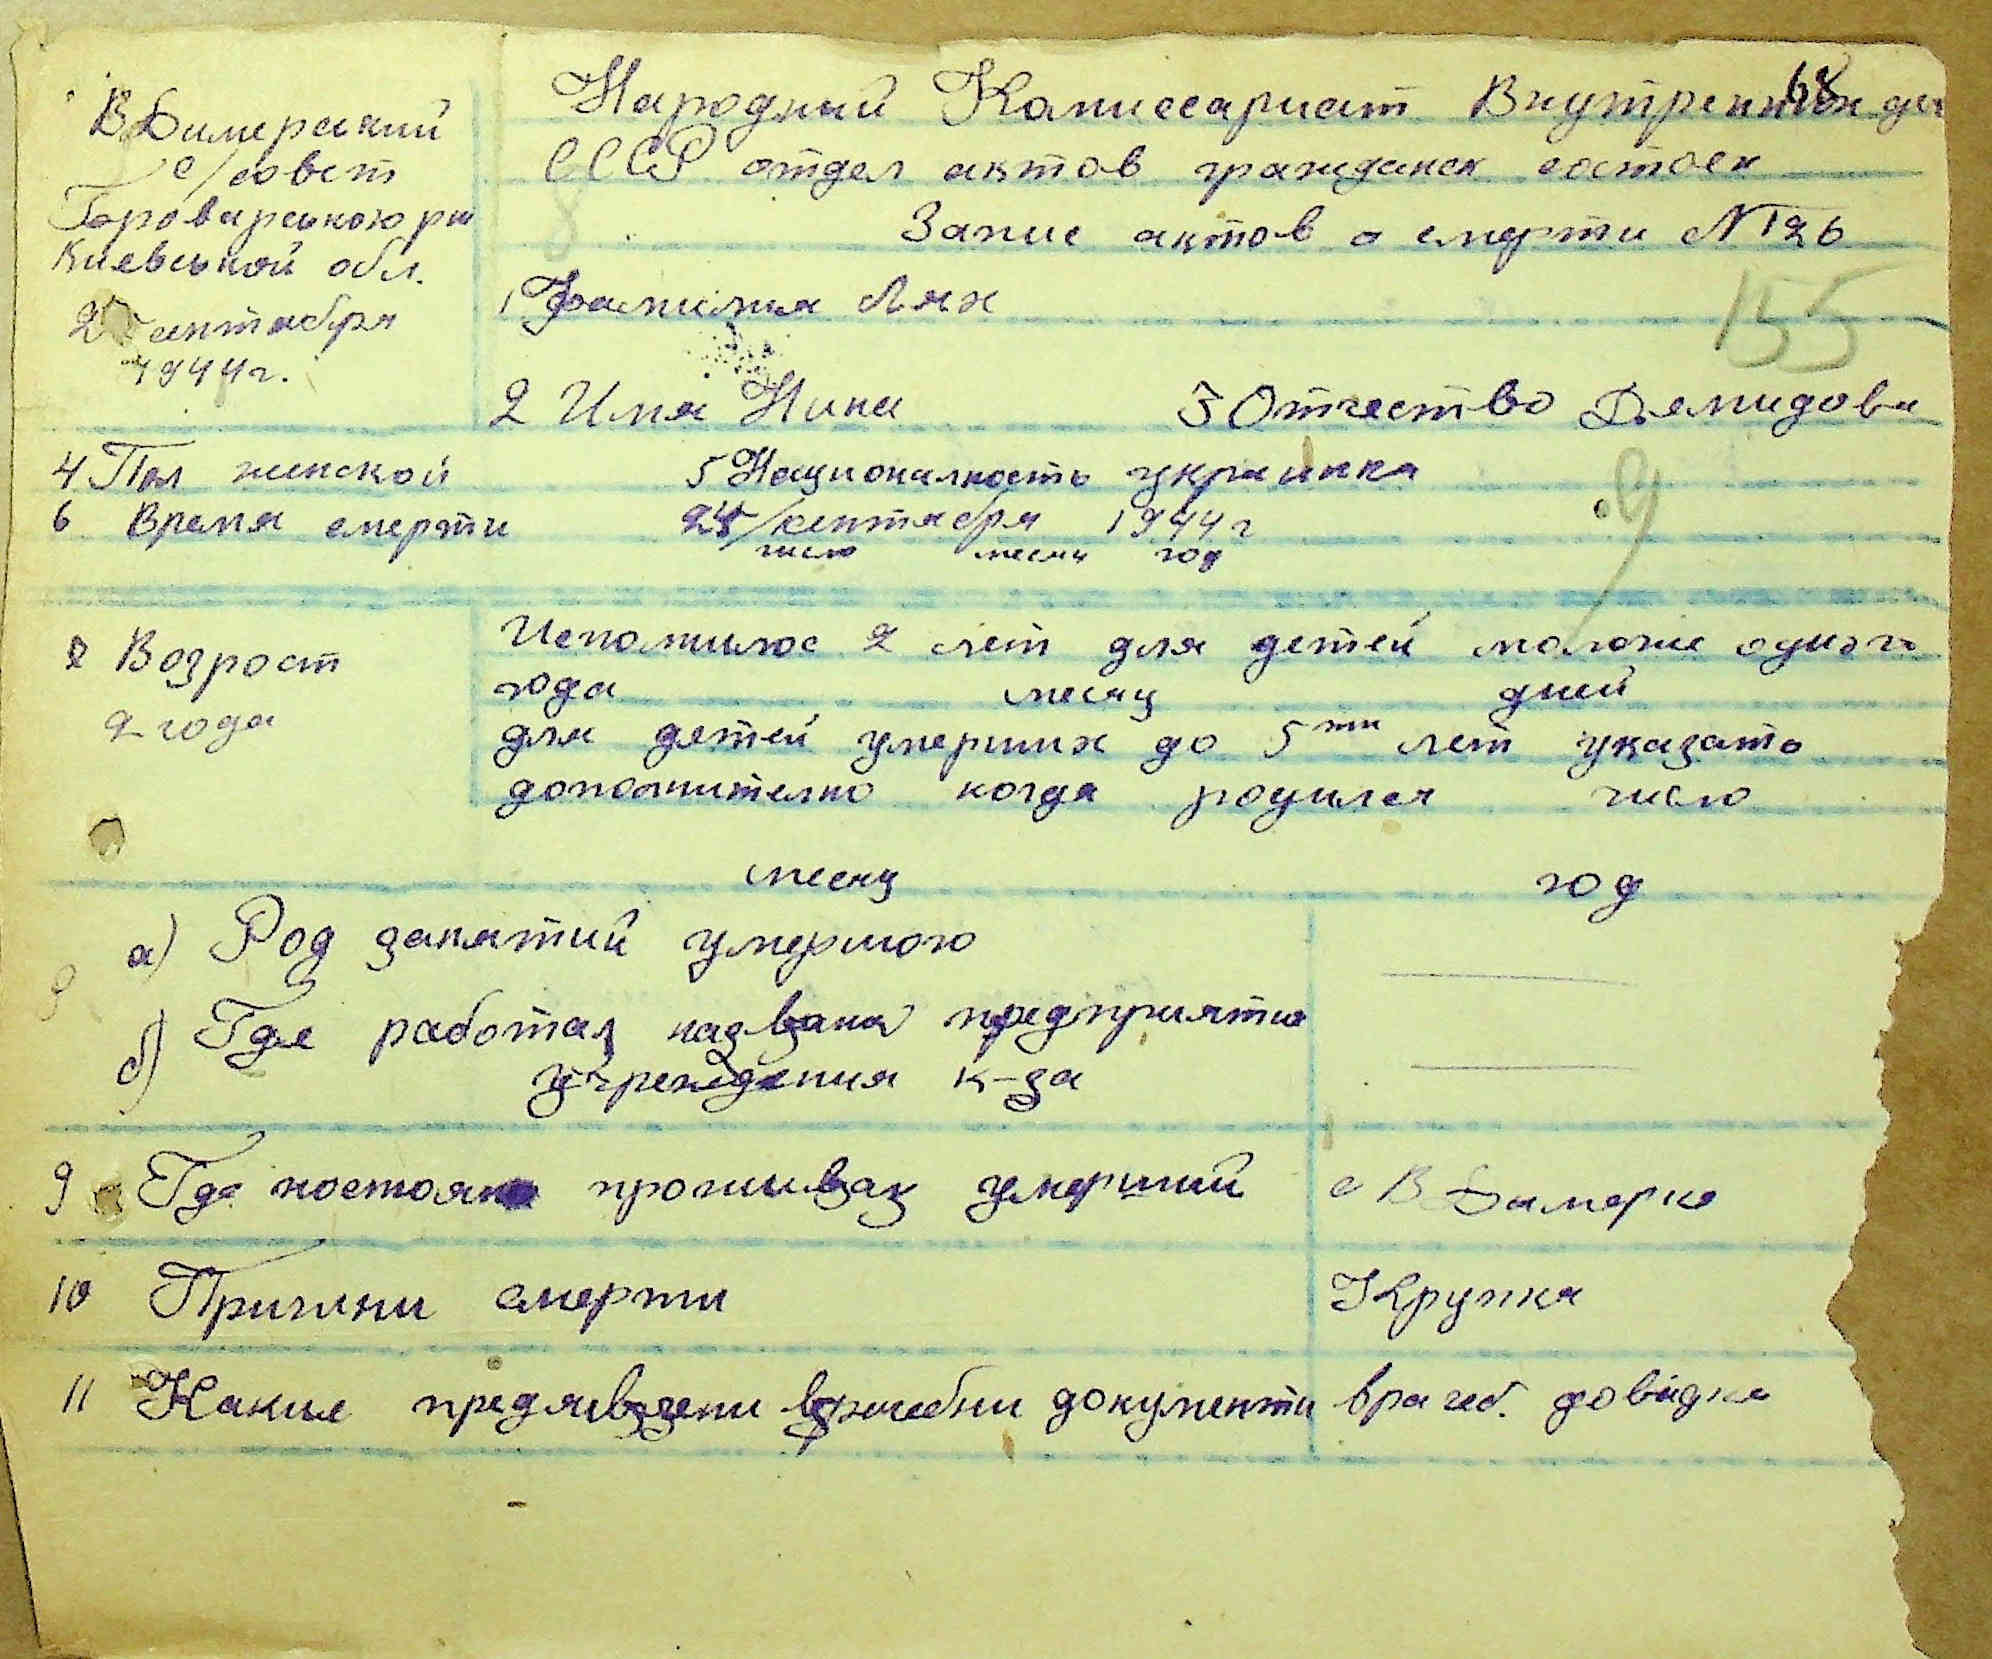 В Димерский
с/совет
Броварською рн
Киевськой обл.
сентября
1944 г.
68
Народный Комиссариат Внутренних дел
СССР отдел актов гражданск состоян
Запис актов о смерти № 26
155
1 Фамилия Лях
2 Имя Нина 3 Отчество Демидова
4 Пол женской 5 Националность украинка
6 Время смерти 24/сентября 1944 г
число месяц год
9
8 Возрост
2 года
Исполнилос 2 лет для детей моложе одного
года месяц дней
для детей умерших до 5ти лет указать
дополнително когда родился число
месяц год
а) Род занятий умершого
б) Где работал названия предприятия
учреждения к-за
9 Где постояно проживал умерший с В Дымерке
10 Причини смерти Крупня
11 Какие предявлени врачебни документи врачеб. довидка